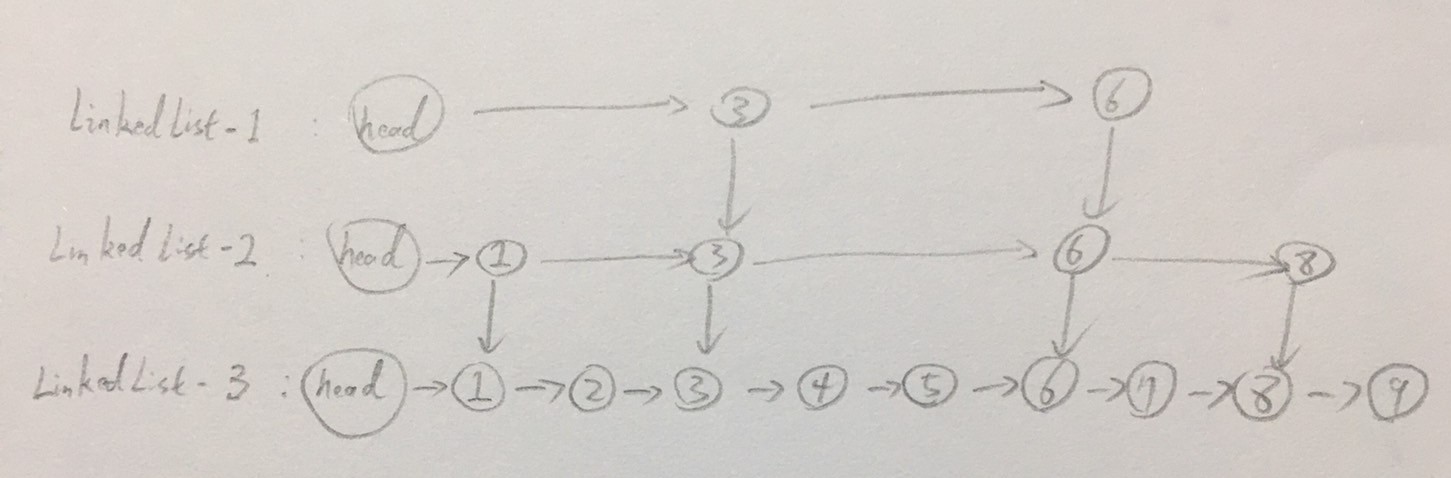 Linked List - 1 : head 3 6
Linked List - 2 : head 1 3 6 8
Linked List - 3 : head 1 2 3 4 5 6 7 8 9